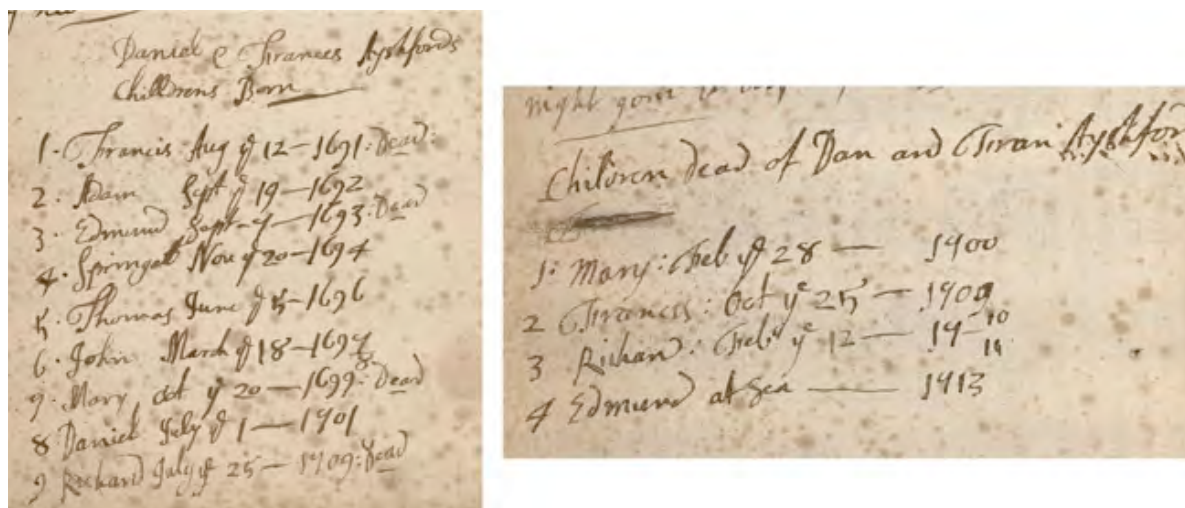 Daniel & Frances Ayshfords
Childrens Born
1. Francis Aug ye 12 — 1691: Dead:
2. Adam Sept ye 19 — 1692
3. Edmund Sept - 7 — 1693: Dead
4. Springet Nov ye 20 — 1694
5. Thomas June ye 5 — 1696
6. John March ye 18 — 1697/8
7. Mary Oct ye 20 — 1699: Dead
8 Daniel July ye 1 — 1701
9 Richard July ye 25 — 1709: Dead
might
Children dead of Dan and Fran: Ayshford
1: Mary: Feb ye 28 — 1700
2 Francis: Oct ye 25 — 1709
3 Richard: Feb: ye 12 — 17 10/11
4 Edmund at Sea — 1713